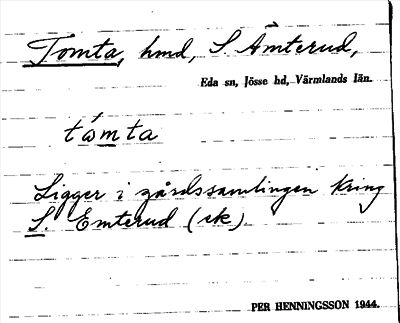 Tomta, hmd, S. Ämterud,
Eda sn, Jösse hd, Värmlands län.
tómta
Ligger i gårdssamlingen kring
S. Emterud (ek)
PER HENNINGSSON 1944.